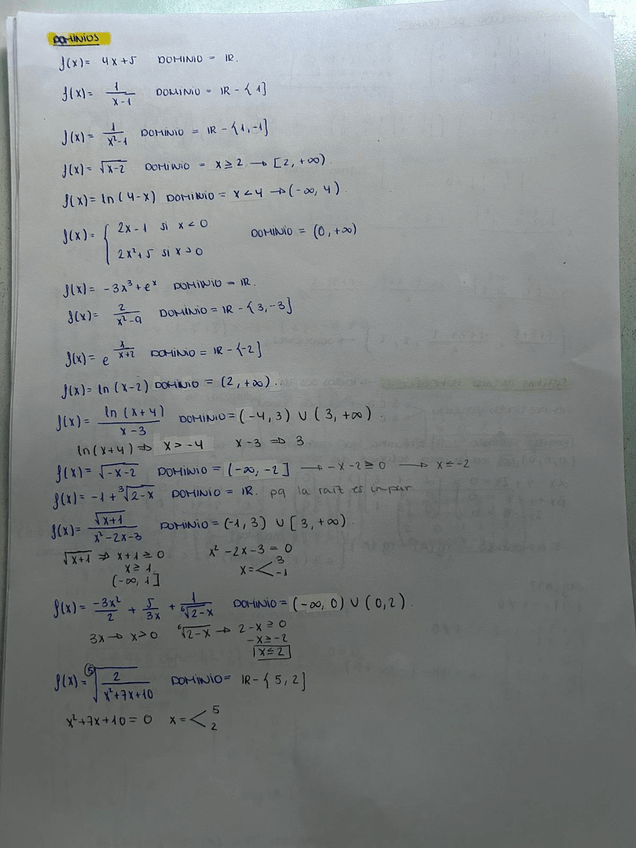 DOMINIOS
f(x)= 4x+5 DOMINIO = IR.
f(x)= 1/(x-1) DOMINIO = IR - {1}
f(x)= 1/(x²-1) DOMINIO = IR - {1,-1}
f(x)= √(x-2) DOMINIO = x≥2 → [2, +∞)
f(x)= ln(4-x) DOMINIO = x<4 → (-∞, 4).
f(x)= { 2x-1 si x<0
2x²+5 si x>0 DOMINIO = (0, +∞)
f(x)= -3x³+eˣ DOMINIO = IR.
f(x)= 2/(x²-9) DOMINIO = IR - {3,-3}
f(x)= e^(1/(x+2)) DOMINIO = IR - {-2}
f(x)= ln(x-2) DOMINIO = (2, +∞).
f(x)= ln(x+4)/(x-3) DOMINIO = (-4, 3) U (3, +∞).
ln(x+4) ⇒ x>-4 x-3 ⇒ 3
f(x)= √(-x-2) DOMINIO = (-∞, -2] → -x-2≥0 → x≤-2
f(x)= -1+³√(2-x) DOMINIO = IR. pq la raíz es impar
f(x)= √(x+1)/(x²-2x-3) DOMINIO = (-1, 3) U [3, +∞).
√(x+1) ⇒ x+1≥0 x²-2x-3=0
x≥1 x=< 3
(-∞, 1] -1
f(x)= -3x²/2 + 5/3x + 1/⁶√(2-x) DOMINIO = (-∞, 0) U (0,2).
3x → x>0 ⁶√(2-x) → 2-x≥0
-x≥-2
x≤2
f(x)= ⁵√(2/(x²+7x+10)) DOMINIO = IR - {5,2}
x²+7x+10=0 x=< 5
2